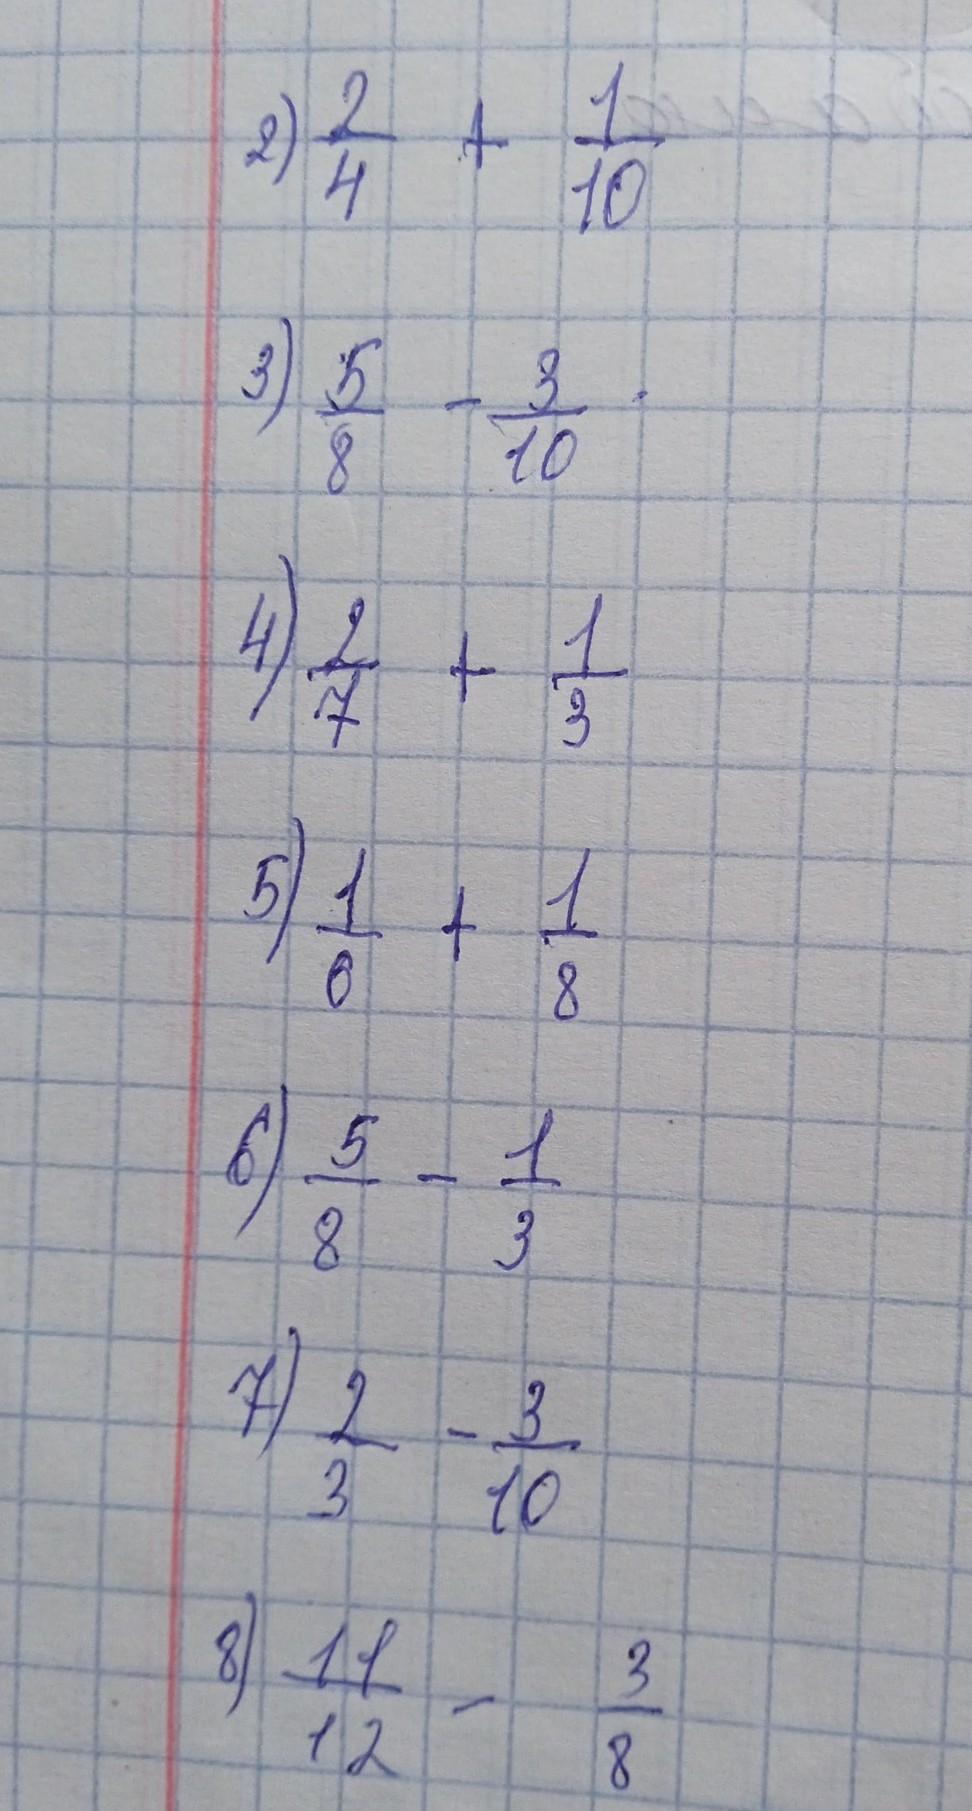 2) 2/4 + 1/10
3) 5/8 - 3/10
4) 2/7 + 1/3
5) 1/6 + 1/8
6) 5/8 - 1/3
7) 2/3 - 3/10
8) 11/12 - 3/8